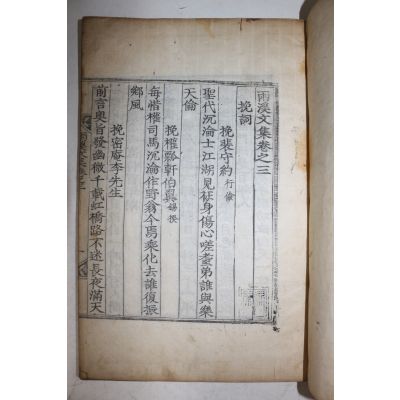 雨溪文集卷之三
挽詞
挽裴守約行儉
聖代沉淪士江湖見在身傷心嗟耋弟誰與樂
天倫
挽權瓢軒伯巽
每惜權司馬沉淪作野翁今焉乘化去誰復振
鄉風
挽密庵李先生
前言奧旨發幽微千載虹橋路不迷長夜滿天